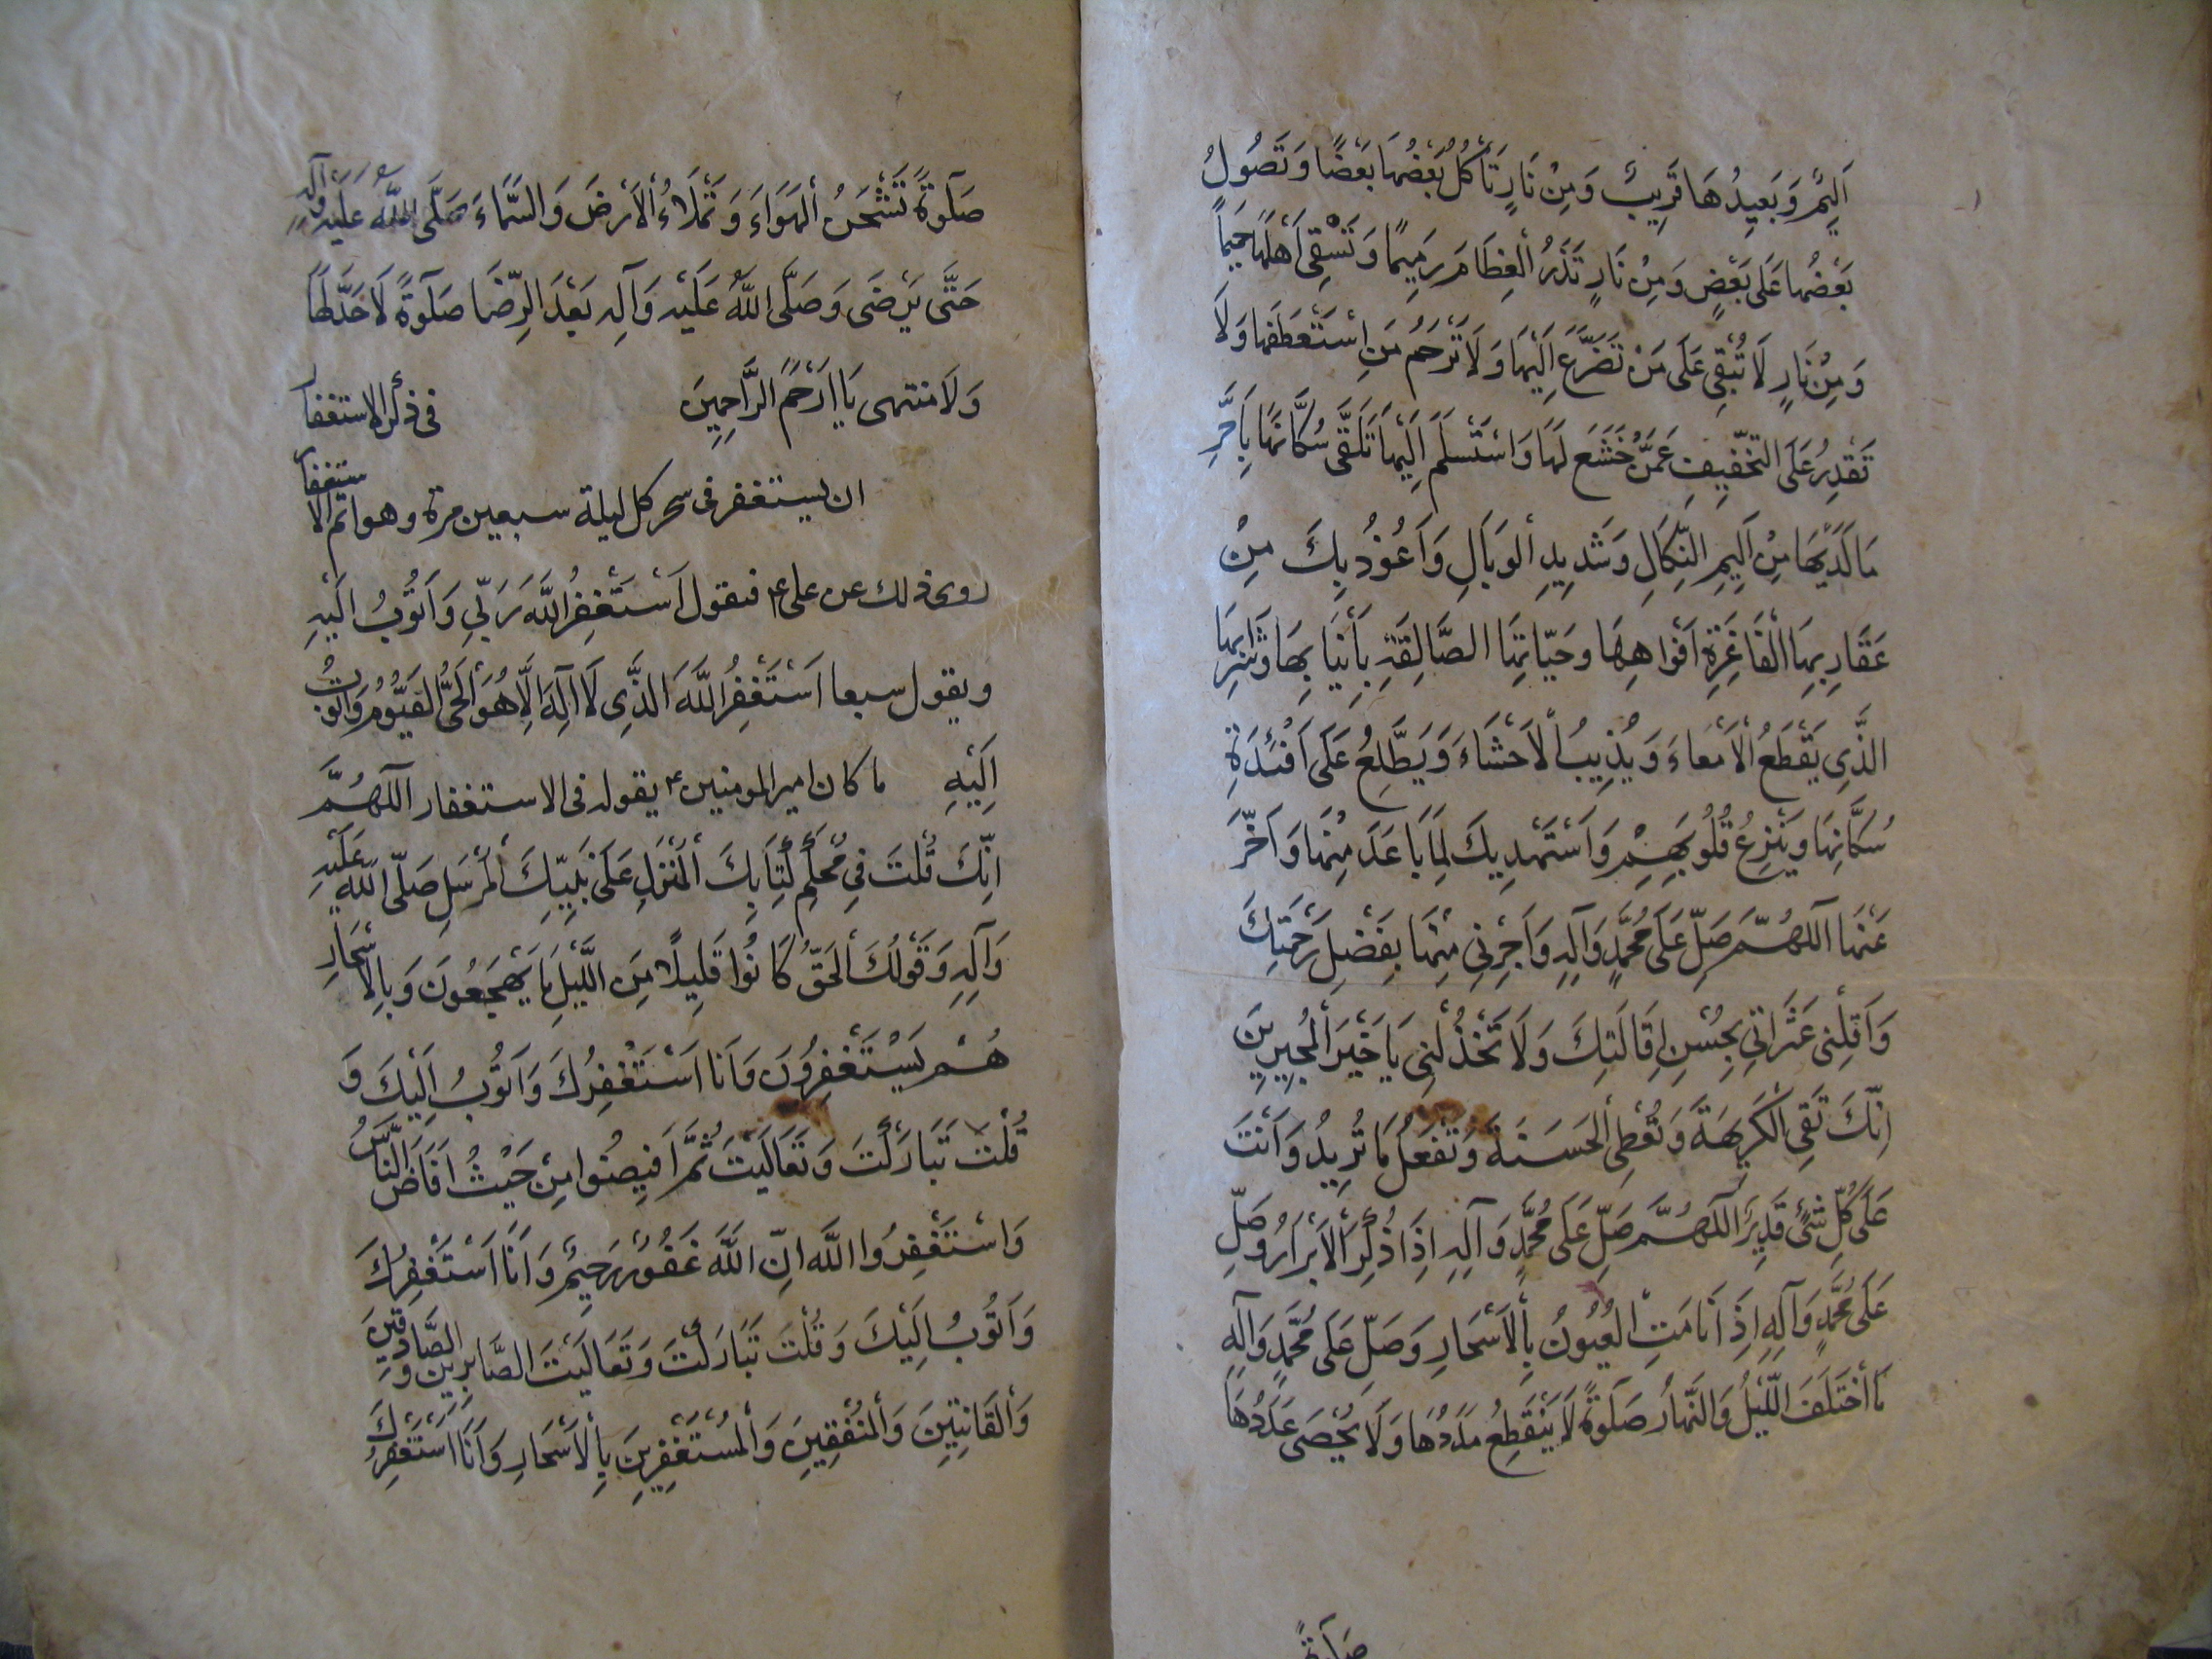 اَلِيمٌ وَبَعِيدُهَا قَرِيبٌ وَمِنْ نَارٍ تَأْكُلُ بَعْضُهَا بَعْضًا وَتَصُولُ
بَعْضُهَا عَلَى بَعْضٍ وَمِنْ نَارٍ تَذَرُ الْعِظَامَ رَمِيمًا وَتَسْقِي اَهْلَهَا حَمِيمًا
وَمِنْ نَارٍ لَا تُبْقِي عَلَى مَنْ تَضَرَّعَ اِلَيْهَا وَلَا تَرْحَمُ مَنِ اسْتَعْطَفَهَا وَلَا
تَقْدِرُ عَلَى التَّخْفِيفِ عَمَّنْ خَشَعَ لَهَا وَاسْتَسْلَمَ اِلَيْهَا تَلَقَّى سُكَّانَهَا بِاَحَرِّ
مَا لَدَيْهَا مِنْ اَلِيمِ النِّكَالِ وَشَدِيدِ الْوَبَالِ وَاَعُوذُ بِكَ مِنْ
عَقَارِبِهَا الْفَاغِرَةِ اَفْوَاهِهَا وَحَيَّاتِهَا الصَّالِقَةِ بِاَنْيَابِهَا وَشَرَابِهَا
الَّذِي يَقْطَعُ الْاَمْعَاءَ وَيُذِيبُ الْاَحْشَاءَ وَيَطَّلِعُ عَلَى اَفْئِدَةِ
سُكَّانِهَا وَيَنْزِعُ قُلُوبَهِمْ وَاَسْتَهْدِيكَ لِمَا بَاعَدَ مِنْهَا وَاَخَّرَ
عَنْهَا اَللّهُمَّ صَلِّ عَلَى مُحَمَّدٍ وَآلِهِ وَاَجِرْنِي مِنْهَا بِفَضْلِ رَحْمَتِكَ
وَاَقِلْنِي عَثَرَاتِي بِحُسْنِ اِقَالَتِكَ وَلَا تَخْذُلْنِي يَا خَيْرَ الْمُجِيرِينَ
اِنَّكَ تَقِي الْكَرِيهَةَ وَتُعْطِي الْحَسَنَةَ وَتَفْعَلُ مَا تُرِيدُ وَاَنْتَ
عَلَى كُلِّ شَيْءٍ قَدِيرٌ اَللّهُمَّ صَلِّ عَلَى مُحَمَّدٍ وَآلِهِ اِذَا ذُكِرَ الْاَبْرَارُ وَصَلِّ
عَلَى مُحَمَّدٍ وَآلِهِ اِذَا نَامَتِ الْعُيُونُ بِالْاَسْحَارِ وَصَلِّ عَلَى مُحَمَّدٍ وَآلِهِ
مَا اخْتَلَفَ اللَّيْلُ وَالنَّهَارُ صَلَوةً لَا يَنْقَطِعُ مَدَدُهَا وَلَا يُحْصَى عَدَدُهَا
صَلَوةً
صَلَوةً تَشْحَنُ الْهَوَاءَ وَتَمْلَاءُ الْاَرْضَ وَالسَّمَاءَ صَلَّى اللهُ عَلَيْهِ وَآلِهِ
حَتَّى يَرْضَى وَصَلَّى اللهُ عَلَيْهِ وَآلِهِ بَعْدَ الرِّضَا صَلَوةً لَا حَدَّ لَهَا
وَلَا مُنْتَهى يَا اَرْحَمَ الرَّاحِمِينَ في ذكر الاستغفار
ان يستغفر في سحر كل ليلة سبعين مرة وهو اتم الاستغفار
روى ذلك عن علي ع فتقول اَسْتَغْفِرُ اللهَ رَبِّي وَاَتُوبُ اِلَيْهِ
ويقول سبعا اَسْتَغْفِرُ اللهَ الَّذِي لَا اِلهَ اِلَّا هُوَ الْحَيُّ الْقَيُّومُ وَاَتُوبُ
اِلَيْهِ ما كان امير المومنين ع يقوله في الاستغفار اَللّهُمَّ
اِنَّكَ قُلْتَ فِي مُحْكَمِ كِتَابِكَ الْمُنْزَلِ عَلَى نَبِيِّكَ الْمُرْسَلِ صَلَّى اللهُ عَلَيْهِ
وَآلِهِ وَقَوْلُكَ الْحَقُّ كَانُوا قَلِيلًا مِنَ اللَّيْلِ مَا يَهْجَعُونَ وَبِالْاَسْحَارِ
هُمْ يَسْتَغْفِرُونَ وَاَنَا اَسْتَغْفِرُكَ وَاَتُوبُ اِلَيْكَ وَ
قُلْتَ تَبَارَكْتَ وَتَعَالَيْتَ ثُمَّ اَفِيضُوا مِنْ حَيْثُ اَفَاضَ النَّاسُ
وَاسْتَغْفِرُوا اللهَ اِنَّ اللهَ غَفُورٌ رَحِيمٌ وَاَنَا اَسْتَغْفِرُكَ
وَاَتُوبُ اِلَيْكَ وَقُلْتَ تَبَارَكْتَ وَتَعَالَيْتَ الصَّابِرِينَ وَالصَّادِقِينَ
وَالْقَانِتِينَ وَالْمُنْفِقِينَ وَالْمُسْتَغْفِرِينَ بِالْاَسْحَارِ وَاَنَا اَسْتَغْفِرُكَ